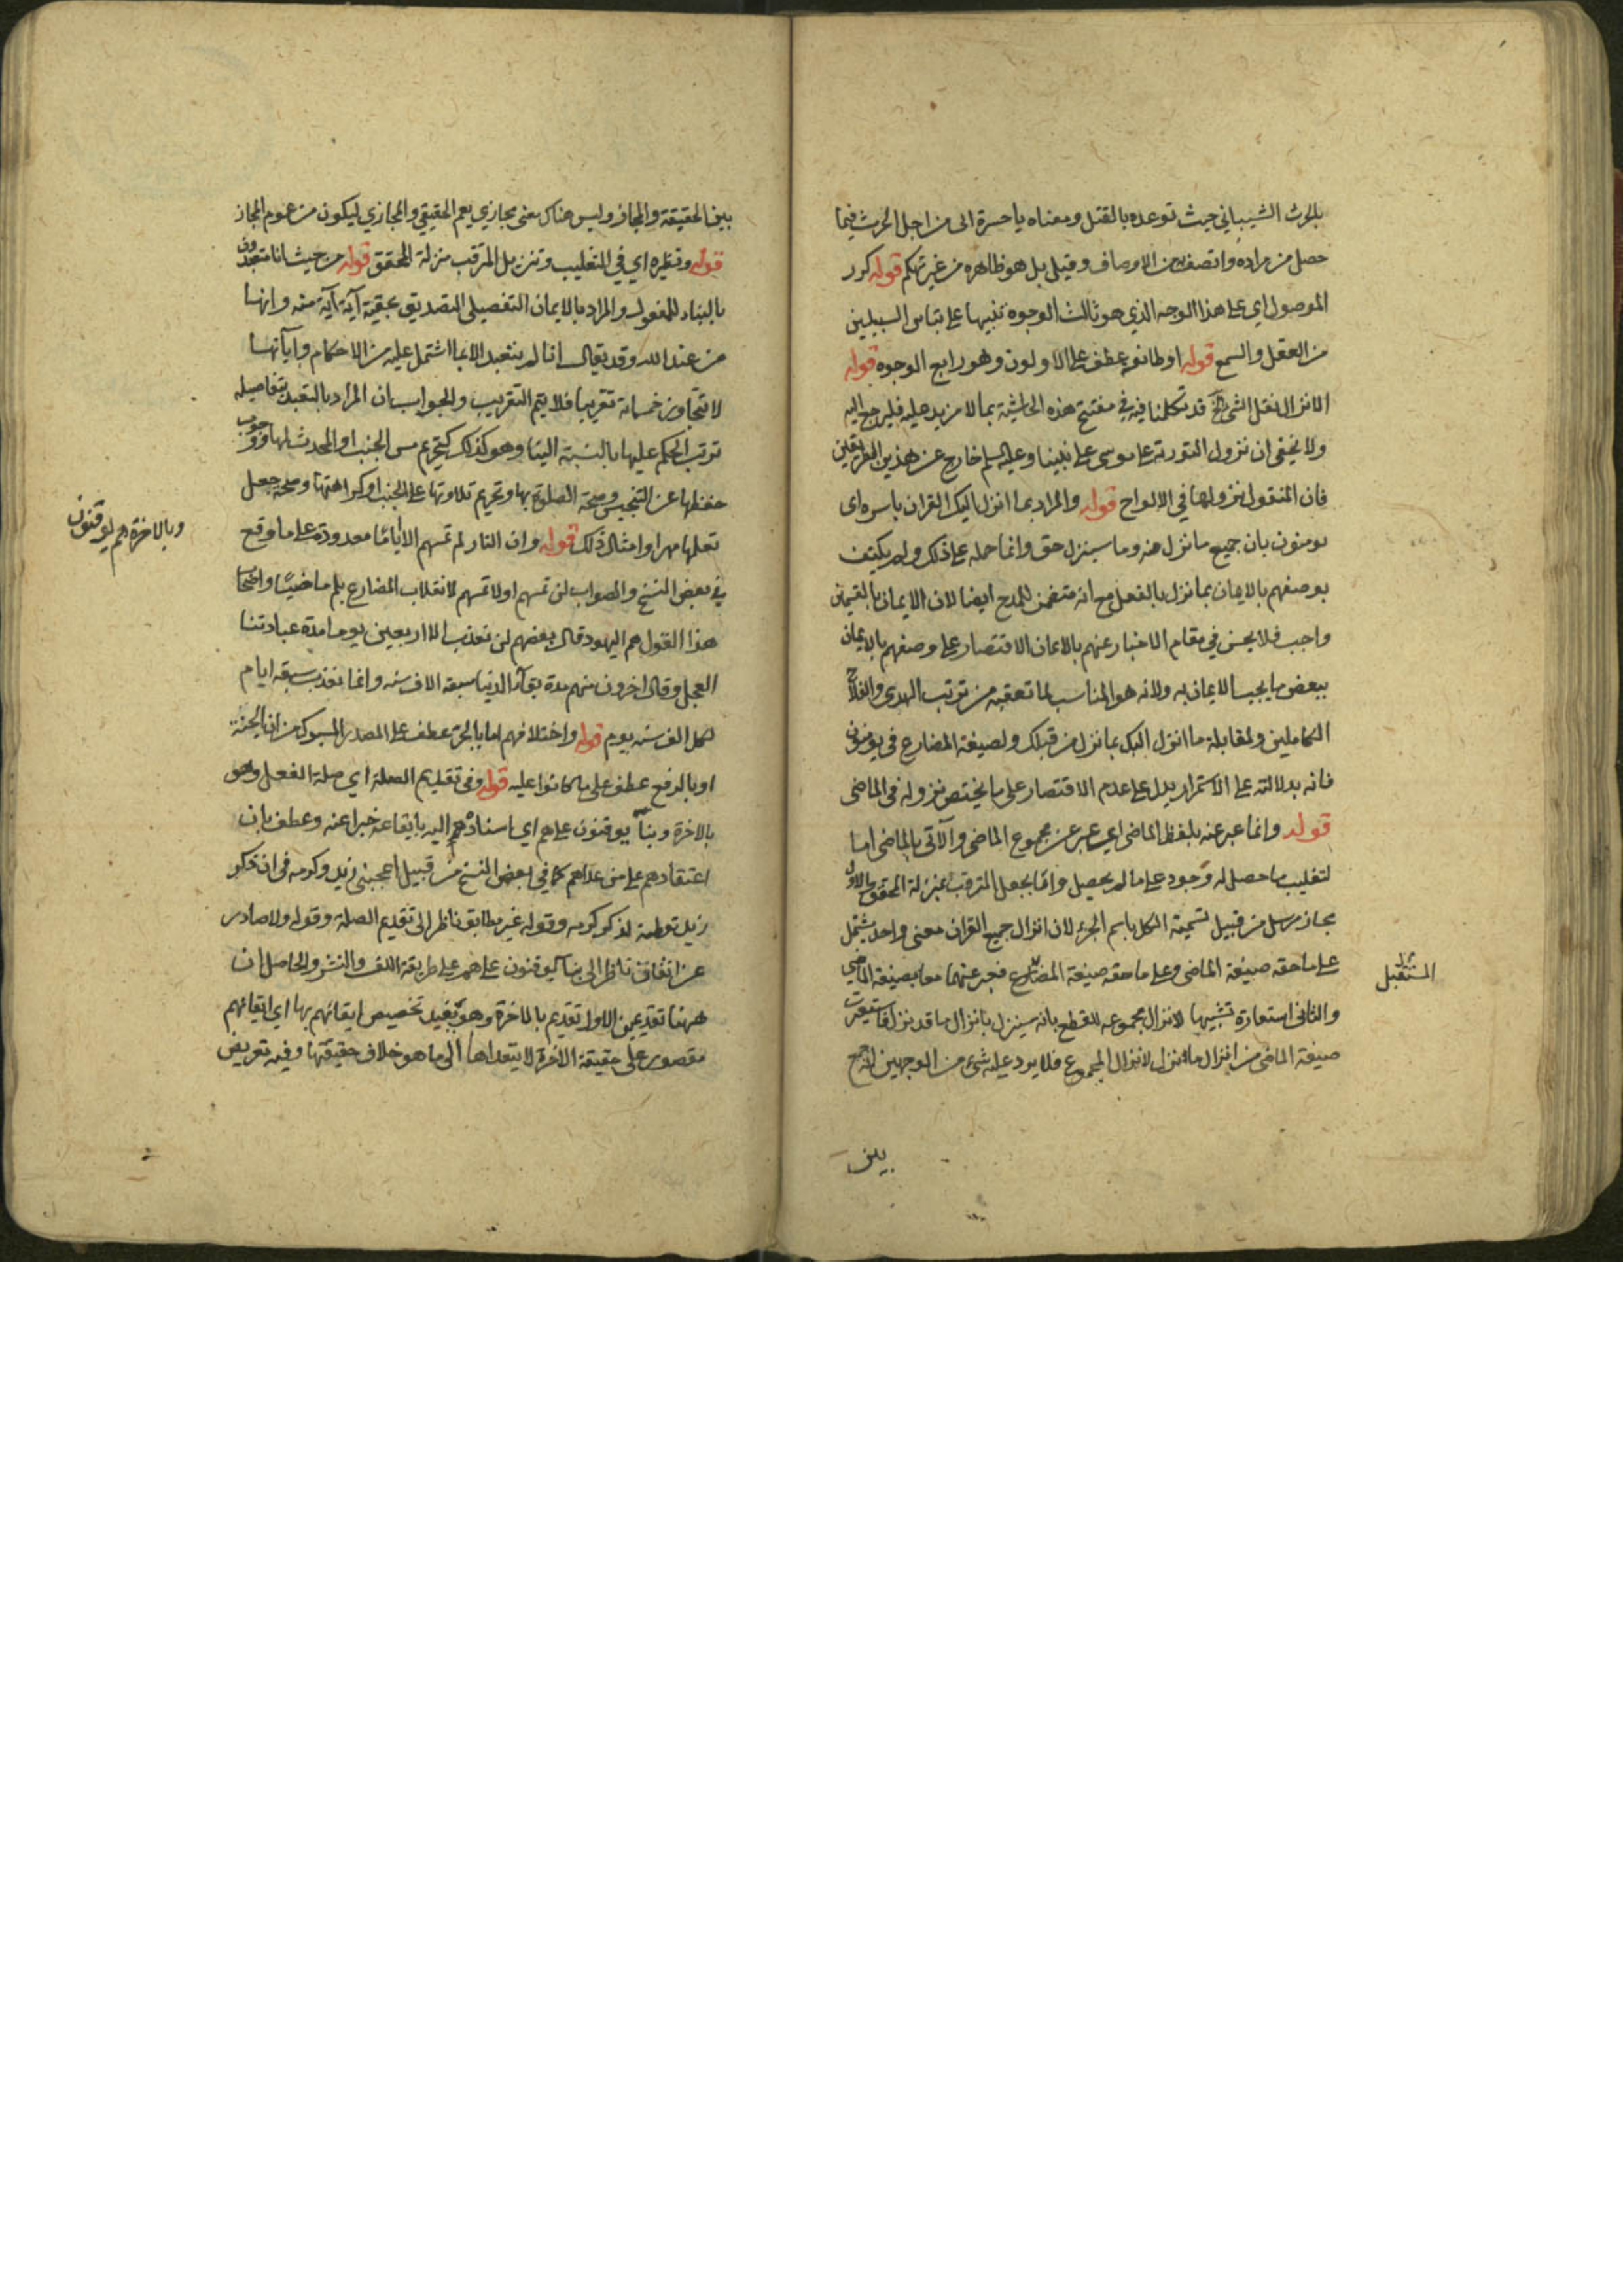 بالحرث الشيباني حيث توعده بالقتل ومعناه يا حسرة ابي من اجل الحرث فيما
حصل من مراده واتصف من الاوصاف وقيل بل هو ظاهره من غير تهكم قوله كرر
الموصول اي على هذا الوجه الذي هو ثالث الوجوه تنبيها على تباين السبيلين
من العقل والسمع قوله او طائفة عطف على الاولون وهو رابع الوجوه قوله
الانزال نقل الشئ الخ قد تكلمنا فيه في مفتتح هذه الحاشية بما لا مزيد عليه فليرجع اليه
ولا يخفى ان نزول التورية على موسى على نبينا وعليه السلم خارج عن هذين الطريقين
فان المنقول نزولها في الالواح قوله والمراد بما انزل اليك القران باسره اى
يومنون بان جميع ما نزل منه وما سينزل حق وانما حمله على ذلك ولم يكتف
بوصفهم بالايمان بما نزل بالفعل مع انه متضمن للمدح ايضا لان الايمان بالقسمين
واجب فلا يحسن في مقام الاخبار عنهم بالايمان الاقتصار على وصفهم بالايمان
ببعض ما يجب الايمان به ولانه هو المناسب لما تعقبه من ترتب الهدى والفلاح
الكاملين ولمقابلة ما انزل اليك بما نزل من قبلك ولصيغة المضارع في يومنون
فانه بدلالته على الاستمرار يدل على عدم الاقتصار على ما يختص نزوله في الماضى
قوله وانما عبر عنه بلفظ الماضى اي عبر عن مجموع الماضى والآتى بالماضى اما
لتغليب ما حصل له وجود على ما لم يحصل واما بجعل المترقب بمنزلة المحقق والاول
مجاز مرسل من قبيل تسمية الكل باسم الجزء لان انزال جميع القران معنى واحد يشتمل
على ما حقه صيغة الماضى وعلى ما حقه صيغة المضارع فعبر عنهما معا بصيغة الماضى
المستقبل
والثانى استعارة تشبيها لانزال مجموعه للقطع بانه سينزل بانزال ما قد نزل فاستعيرت
صيغة الماضى من انزال ما نزل لانزال المجموع فلا يرد عليه شئ من الوجهين الجمع
بين
بين الحقيقة والمجاز وليس هناك معنى مجازي يعم الحقيقي والمجازي ليكون من عموم المجاز
قوله ونظيره اي في التغليب وتنزيل المترقب منزلة المحقق قوله من حيث انا متعبدون
بالبناء للمفعول والمراد بالايمان التفصيلى التصديق بحقية آية آية منه وانها
من عند الله وقد يقال انا لم نتعبد الا بما اشتمل عليه من الاحكام وآياتها
لا تتجاوز خمسمائة تقريبا فلا يتم التقريب والجواب ان المراد بالتعبد بتفاصيله
ترتب الحكم عليها بالنسبة الينا وهو كذلك كتحريم مس الجنب او المحدث لها ووجوب
حفظها عن التنجيس وصحة الصلوة بها وتحريم تلاوتها على الجنب او كراهتها وصحة جعل
تعلمها مهرا وامثال ذلك قوله وان النار لم تمسهم الا اياما معدودة على ما وقع
وبالاخرة هم يوقنون
في بعض النسخ والصواب لن تمسهم او لا تمسهم لانقلاب المضارع بلم ماضيا واصحاب
هذا القول هم اليهود قال بعضهم لن نعذب الا اربعين يوما مدة عبادتنا
العجل وقال اخرون منهم مدة بقآء الدنيا سبعة الاف سنه وانما نعذب سبعة ايام
لكل الف سنه يوم قوله واختلافهم اما بالجر عطف على المصدر المسبوك من ان الجنة
او بالرفع عطف على ما كانوا عليه قوله وفي تقديم الصلة اي صلة الفعل وهو
بالاخرة وبناء يوقنون على هم اي اسناده اليه بايقاعه خبرا عنه وعطف بان
اعتقادهم على من عداهم كما في بعض النسخ من قبيل اعجبني زيد وكرمه في ان ذكر
زيد توطية لذكر كرمه وقوله غير مطابق ناظر الى تقديم الصلة وقوله ولا صادر
عن ايقان ناظر الى بناء يوقنون على هم على طريقة اللف والنشر والحاصل ان
ههنا تقديمين الاول تقديم بالاخرة وهو يفيد تخصيص ايقانهم بها اي ايقانهم
مقصور على حقيقة الاخرة لا يتعداها الى ما هو خلاف حقيقتها وفيه تعريض